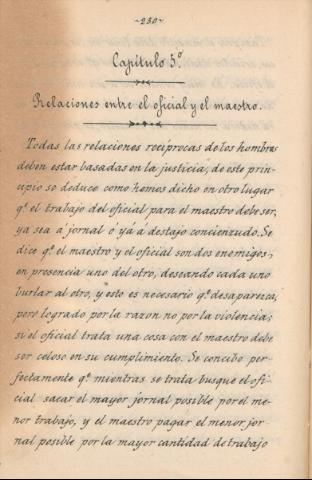 -230-
Capítulo 5.º
Relaciones entre el oficial y el maestro.
Todas las relaciones reciprocas de los hombres
deben estar basadas en la justicia, de este prin-
cipio se deduce como hemos dicho en otro lugar
q.e el trabajo del oficial para el maestro debe ser,
ya sea á jornal ó yá á destajo concienzudo. Se
dice q.e el maestro y el oficial son dos enemigos,
en presencia uno del otro, deseando cada uno
burlar al otro, y esto es necesario q.e desaparezca,
pero logrado por la razon no por la violencia;
si el oficial trata una cosa con el maestro debe
ser celoso en su cumplimiento. Se concibe per-
fectamente q.e mientras se trata busque el ofi-
cial sacar el mayor jornal posible por el me-
nor trabajo, y el maestro pagar el menor jor-
nal posible por la mayor cantidad de trabajo